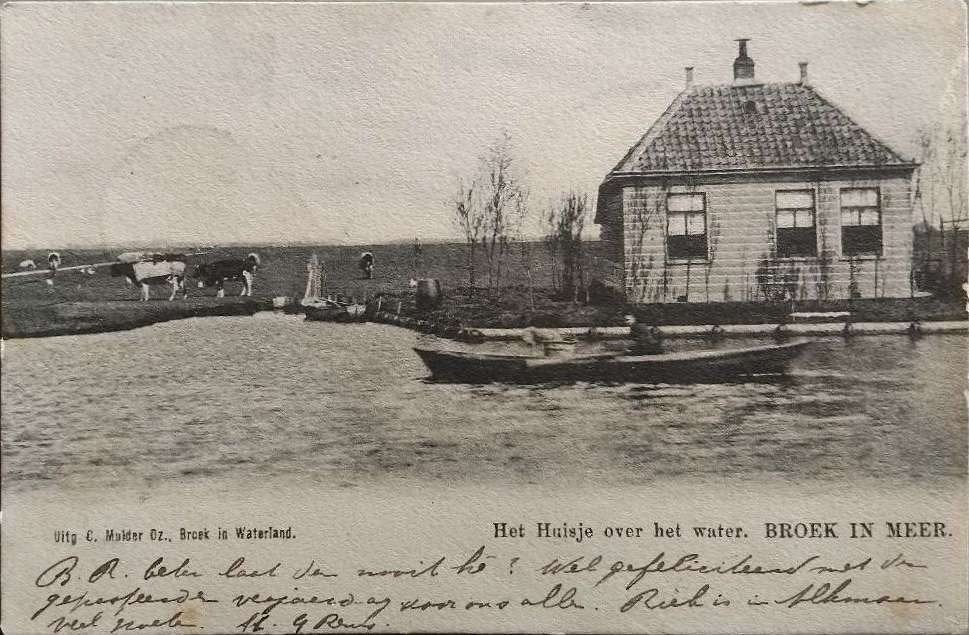 Uitg C. Mulder Oz., Broek in Waterland.
Het Huisje over het water. BROEK IN MEER.
B. R. beter laat dan nooit hé? Wel gefeliciteerd met den
gepasseerden verjaardag voor ons allen. Riek is in Alkmaar.
veel groeten.